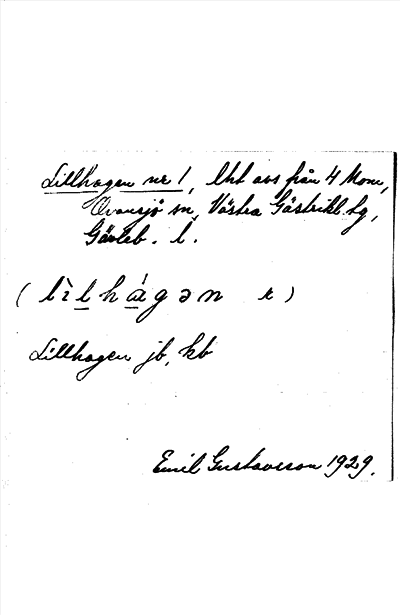 Lillhagen nr 1, lht avs från 4 Mom,
Ovansjö sn, Västra Gästrikl. tg,
Gävleb. l.
(lìlhágən r)
Lillhagen jb, kb
Emil Gustavsson 1929.